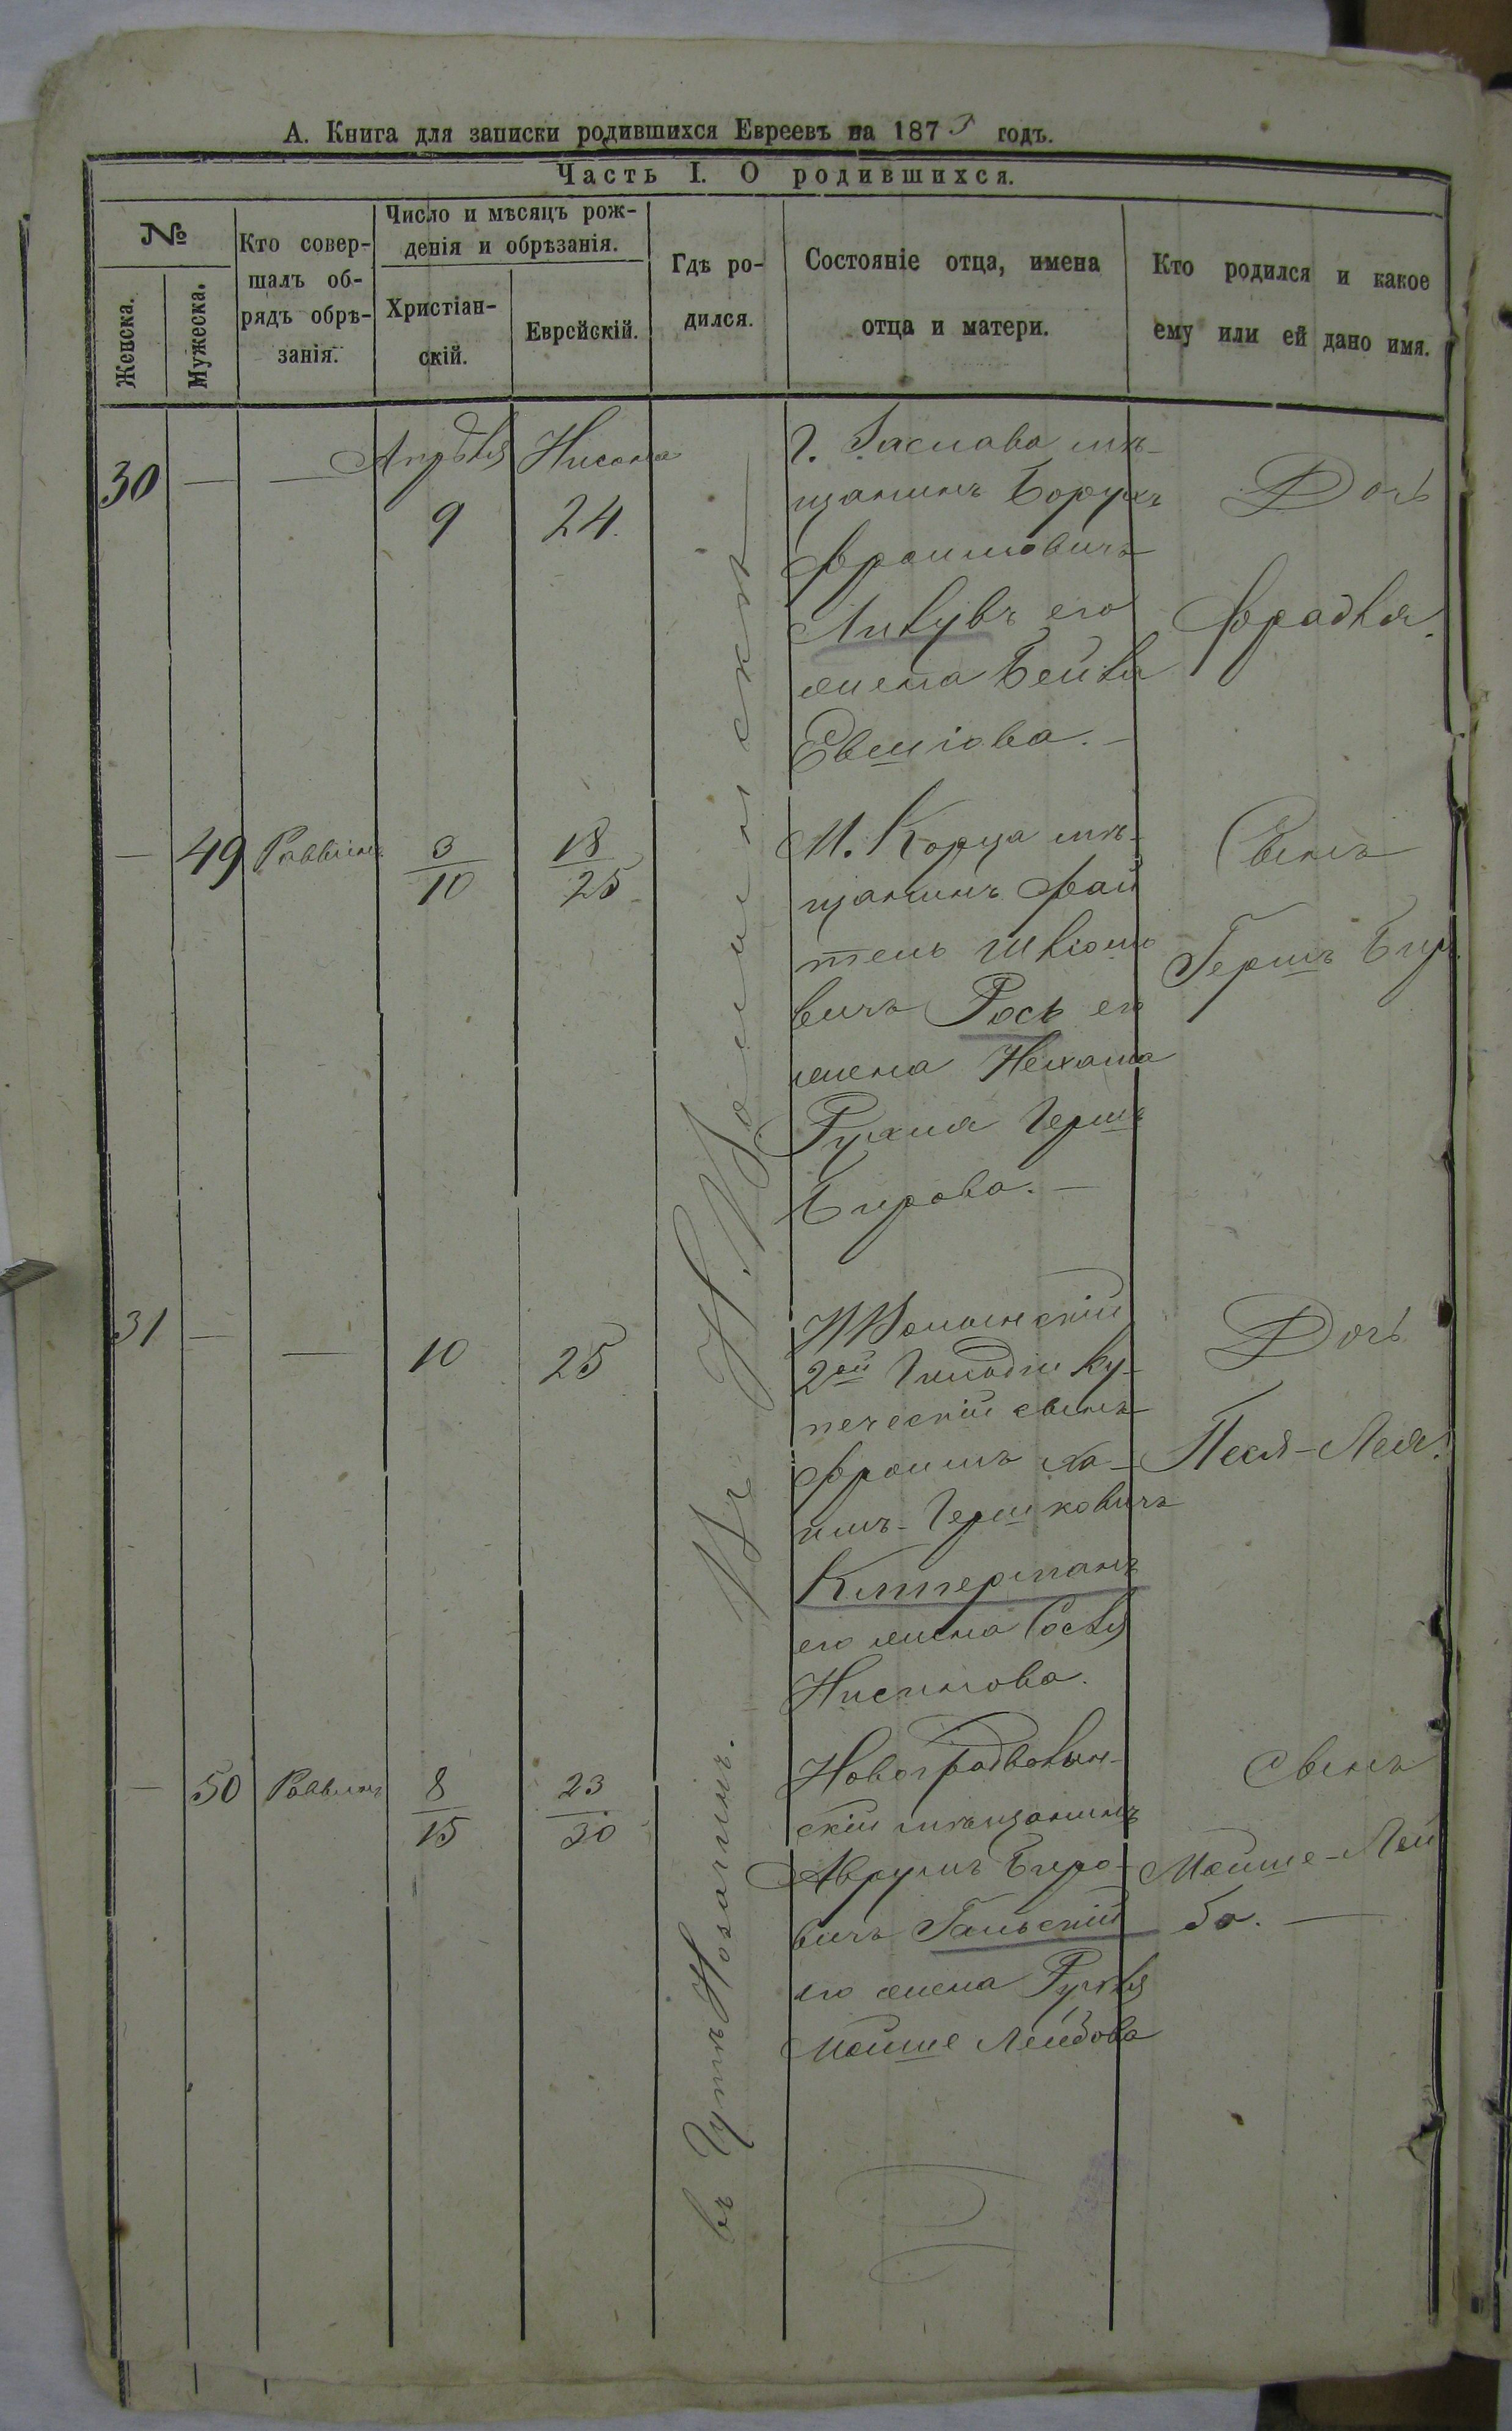 А. Книга для записки родившихся Евреевъ на 1875 годъ.
Часть I. О родившихся.
№
Женска.
Мужеска.
Кто совер-
шалъ об-
рядъ обрѣ-
занія.
Число и мѣсяцъ рож-
денія и обрѣзанія.
Христіан-
скій.
Еврейскій.
Гдѣ ро-
дился.
Состояніе отца, имена
отца и матери.
Кто родился и какое
ему или ей дано имя.
30 — — Апрѣля 9 Нисона 24.
г. Заслава мѣ-
щанинъ Борухъ
Фроимовичъ
его
жена Бейла
Дочь
Фрадля.
— 49 Раввинъ 3/10 18/25
М. Корца мѣ-
щанинъ Фай
тель Шліомо
вичъ Росъ его
жена Нехама
Рухля Гершъ
Берова. —
Сынъ
Гершъ Бер.
31 — — 10 25
НВолынскій
2ой Гильдіи Ку-
печескій сынъ
Фроимъ Ха-
имъ-Гершковичъ
Киперманъ
его жена Сосля
Нисинова.
Дочь
Песя-Лея.
— 50 Раввинъ 8/15 23/30
Новоградволын-
скій мѣщанинъ
Аврумъ Беро-
вичъ Гальскій
его жена Рухля
Мойше Лейбова
Сынъ
Мойше-Лей
ба. —
Въ Н.Волынскѣ